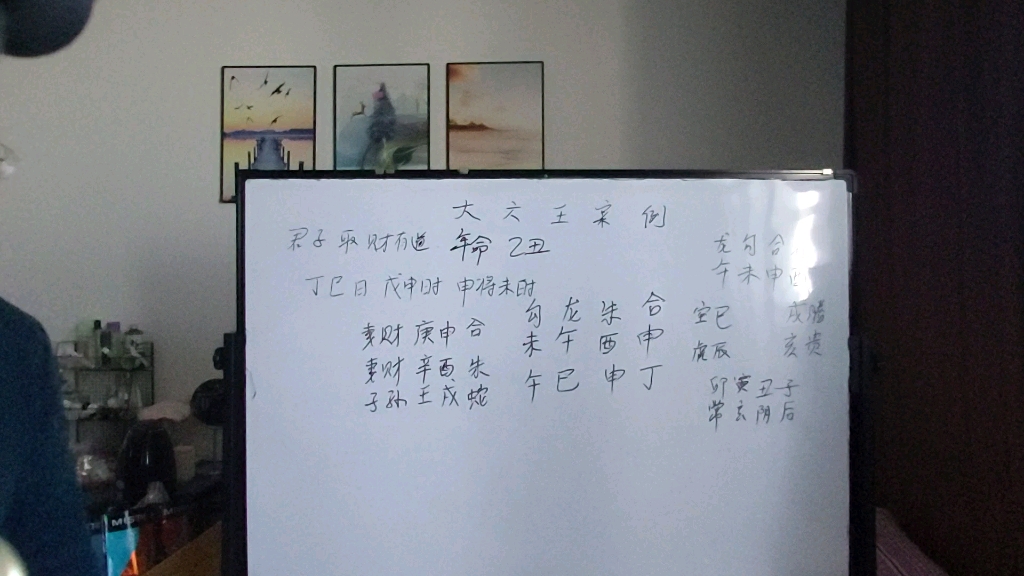 大六壬案例
君子取财有道 年命 乙丑
丁巳日 戊申时 申将未时
妻财 庚申 合
妻财 辛酉 朱
子孙 壬戌 蛇
勾 龙 朱 合
未 午 酉 申
午 巳 申 丁
龙 勾 合
午 未 申 酉
空 巳 戌 腾
虎 辰 亥 贵
卯 寅 丑 子
常 玄 阴 后